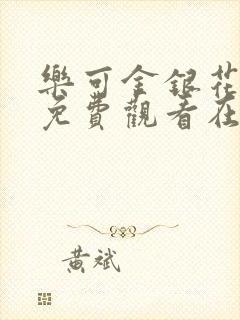 樂可金銀花
免費觀看在
黃斌